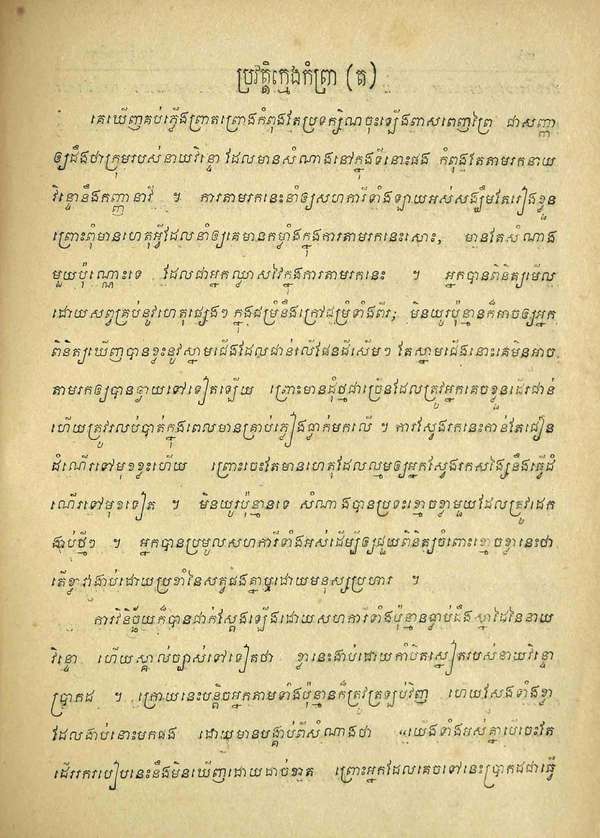 ប្រវត្តិក្មេងកំព្រា (ត)
គេឃើញគប់ភ្លើងព្រោងព្រាតកំពុងតែប្រទក្សិណចុះឡើងពាសពេញព្រៃ ជាសញ្ញា
ឲ្យដឹងថាក្រុមរបស់នាយវិន្ទោ ដែលមានសំណាងនៅក្នុងទីនោះផង កំពុងតែតាមរកនាយ
វិន្ទោនឹងកញ្ញានារី ។ ការតាមរកនេះនាំឲ្យសហការីទាំងឡាយអស់សង្ឃឹមតែរៀងខ្លួន
ព្រោះពុំមានហេតុអ្វីដែលនាំឲ្យគេមានកម្លាំងក្នុងការតាមរកនេះសោះ, មានតែសំណាង
មួយប៉ុណ្ណោះទេ ដែលជាអ្នកឈ្លាសវៃក្នុងការតាមរកនេះ ។ អ្នកបានពិនិត្យមើល
ដោយសព្វគ្រប់នូវហេតុផ្សេងៗ ក្នុងជម្រំនឹងក្រៅជម្រំទាំងពីរ; មិនយូរប៉ុន្មានក៏អាចឲ្យអ្នក
ពិនិត្យឃើញបានខ្លះនូវស្នាមជើងដែលជាន់លើផែនដីសើមៗ តែស្នាមជើងនោះគេមិនអាច
តាមរកឲ្យបានឆ្ងាយទៅទៀតឡើយ ព្រោះមានដុំថ្មជាច្រើនដែលត្រូវអ្នកគេចខ្លួនដើរជាន់
ហើយត្រូវរលប់បាត់ក្នុងពេលមានគ្រាប់ភ្លៀងធ្លាក់មកលើ ។ ការស្វែងរកនេះកាន់តែជឿន
ដំណើរទៅមុខខ្លះហើយ ព្រោះចេះតែមានហេតុដែលល្មមឲ្យអ្នកស្វែងរកសង្ស័យនឹងធ្វើដំ
ណើរទៅមុខទៀត ។ មិនយូរប៉ុន្មានទេ សំណាងបានប្រទះខ្មោចខ្លាមួយដែលត្រូវដេក
ងាប់ថ្មីៗ ។ អ្នកបានប្រមូលសហការីទាំងអស់ដើម្បីឲ្យជួយពិនិត្យចំពោះខ្មោចខ្លានេះថា
តើខ្លាវាងាប់ដោយប្រខាំនៃសត្វផងគ្នាឬដោយមនុស្សប្រហារ ។
ការវិនិច្ឆ័យក៏បានជាក់ស្ដែងឡើងដោយសហការីទាំងប៉ុន្មានធ្លាប់ដឹងស្នាដៃនៃនាយ
វិន្ទោ ហើយស្គាល់ច្បាស់ទៅទៀតថា ខ្លានេះងាប់ដោយកាំបិតស្នៀតរបស់នាយវិន្ទោ
ប្រាកដ ។ ក្រោយនេះបន្តិចអ្នកតាមទាំងប៉ុន្មានក៏ត្រូវត្រឡប់វិញ ហើយសែងទាំងខ្លា
ដែលងាប់នោះមកផង ដោយមានបង្គាប់ពីសំណាងថា “យើងទាំងអស់គ្នាបើចេះតែ
ដើររករបៀបនេះនឹងមិនឃើញដោយដាច់ខាត ព្រោះអ្នកដែលគេចទៅនេះប្រាកដជាធ្វើ